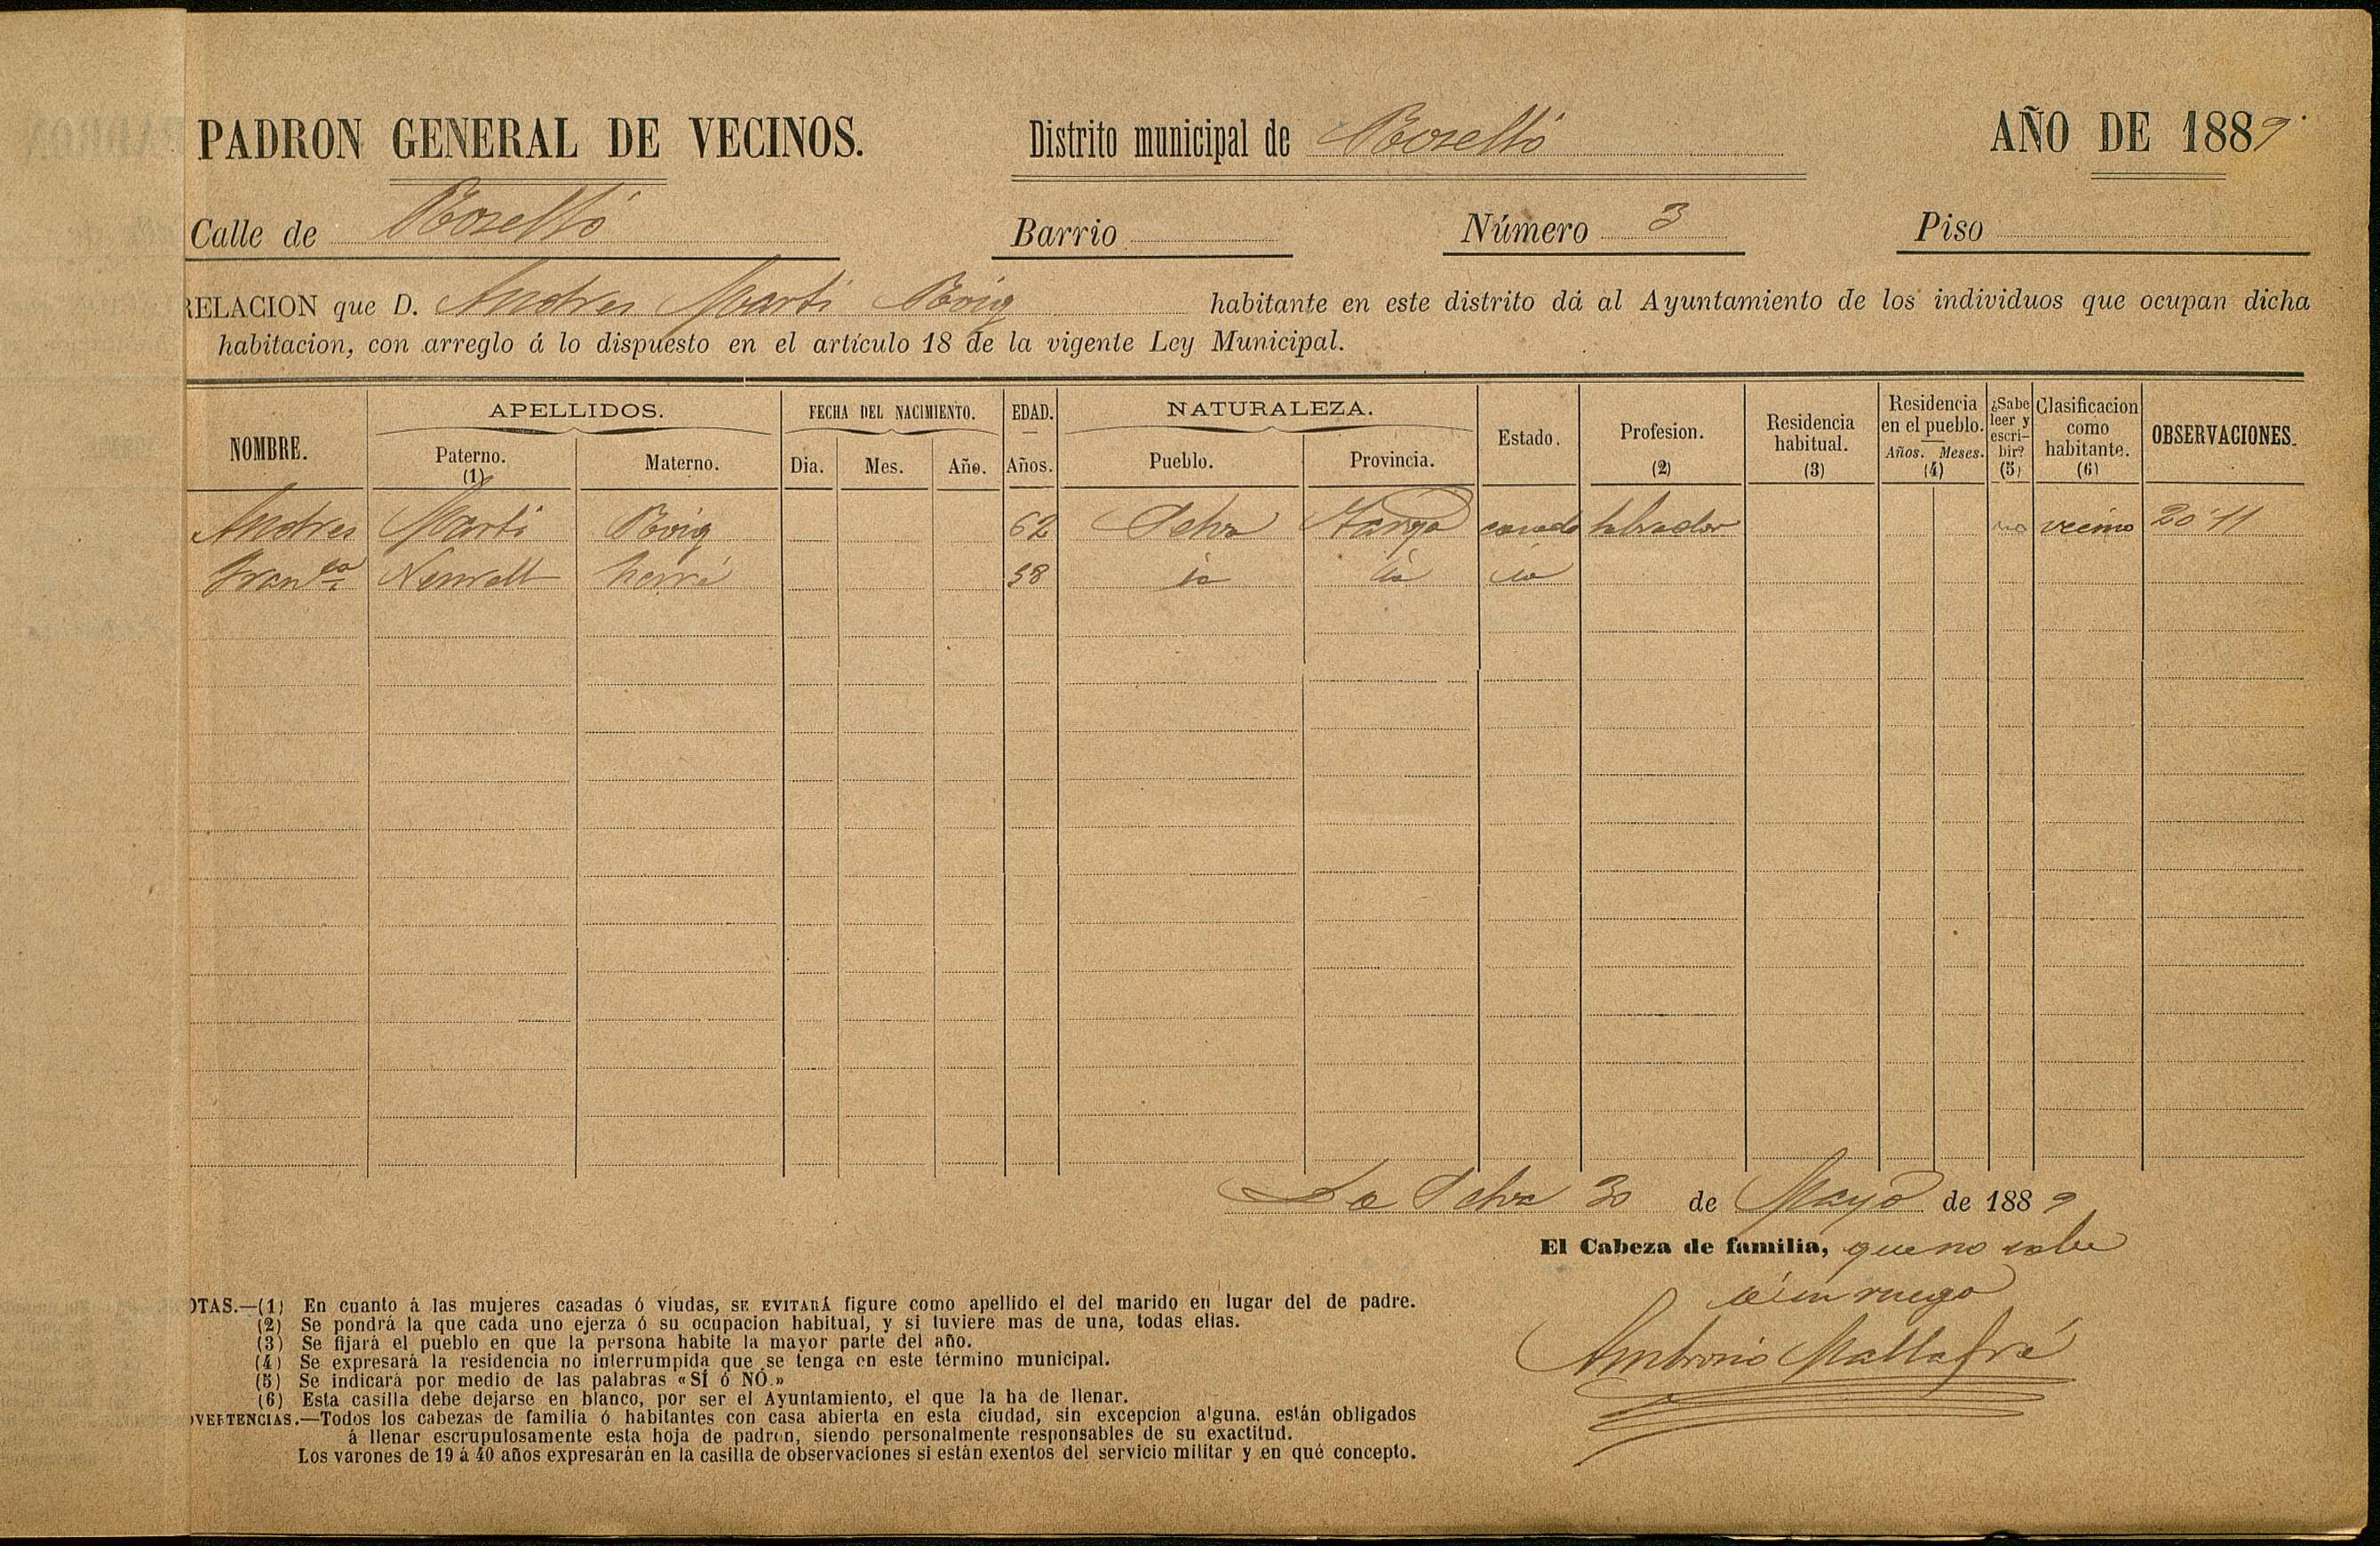 PADRON GENERAL DE VECINOS. Distrito municipal de Roselló AÑO DE 1889
Calle de Roselló Barrio Número 3 Piso
RELACION que D. Andres Marti Roig habitante en este distrito dá al Ayuntamiento de los individuos que ocupan dicha
habitacion, con arreglo á lo dispuesto en el artículo 18 de la vigente Ley Municipal.
NOMBRE. APELLIDOS. FECHA DEL NACIMIENTO. EDAD. NATURALEZA. Estado. Profesion. (2) Residencia habitual. (3) Residencia en el pueblo. Años. Meses. (4) ¿Sabe leer y escribir? (5) Clasificacion como habitante. (6) OBSERVACIONES.
Paterno. (1) Materno. Dia. Mes. Año. Años. Pueblo. Provincia.
Andres Marti Roig 62 Selva Tarrga casado labrador no vecino 20'11
Franca 58 id id id
La Selva 30 de Mayo de 1889
El Cabeza de familia, que no sabe
á su ruego
Ambrosio Mallafré
OTAS.—(1) En cuanto á las mujeres casadas ó viudas, SE EVITARÁ figure como apellido el del marido en lugar del de padre.
(2) Se pondrá la que cada uno ejerza ó su ocupacion habitual, y si tuviere mas de una, todas ellas.
(3) Se fijará el pueblo en que la persona habite la mayor parte del año.
(4) Se expresará la residencia no interrumpida que se tenga en este término municipal.
(5) Se indicará por medio de las palabras «SÍ ó NÓ.»
(6) Esta casilla debe dejarse en blanco, por ser el Ayuntamiento, el que la ha de llenar.
DVERTENCIAS.—Todos los cabezas de familia ó habitantes con casa abierta en esta ciudad, sin excepcion alguna, están obligados
á llenar escrupulosamente esta hoja de padron, siendo personalmente responsables de su exactitud.
Los varones de 19 á 40 años expresarán en la casilla de observaciones si están exentos del servicio militar y en qué concepto.